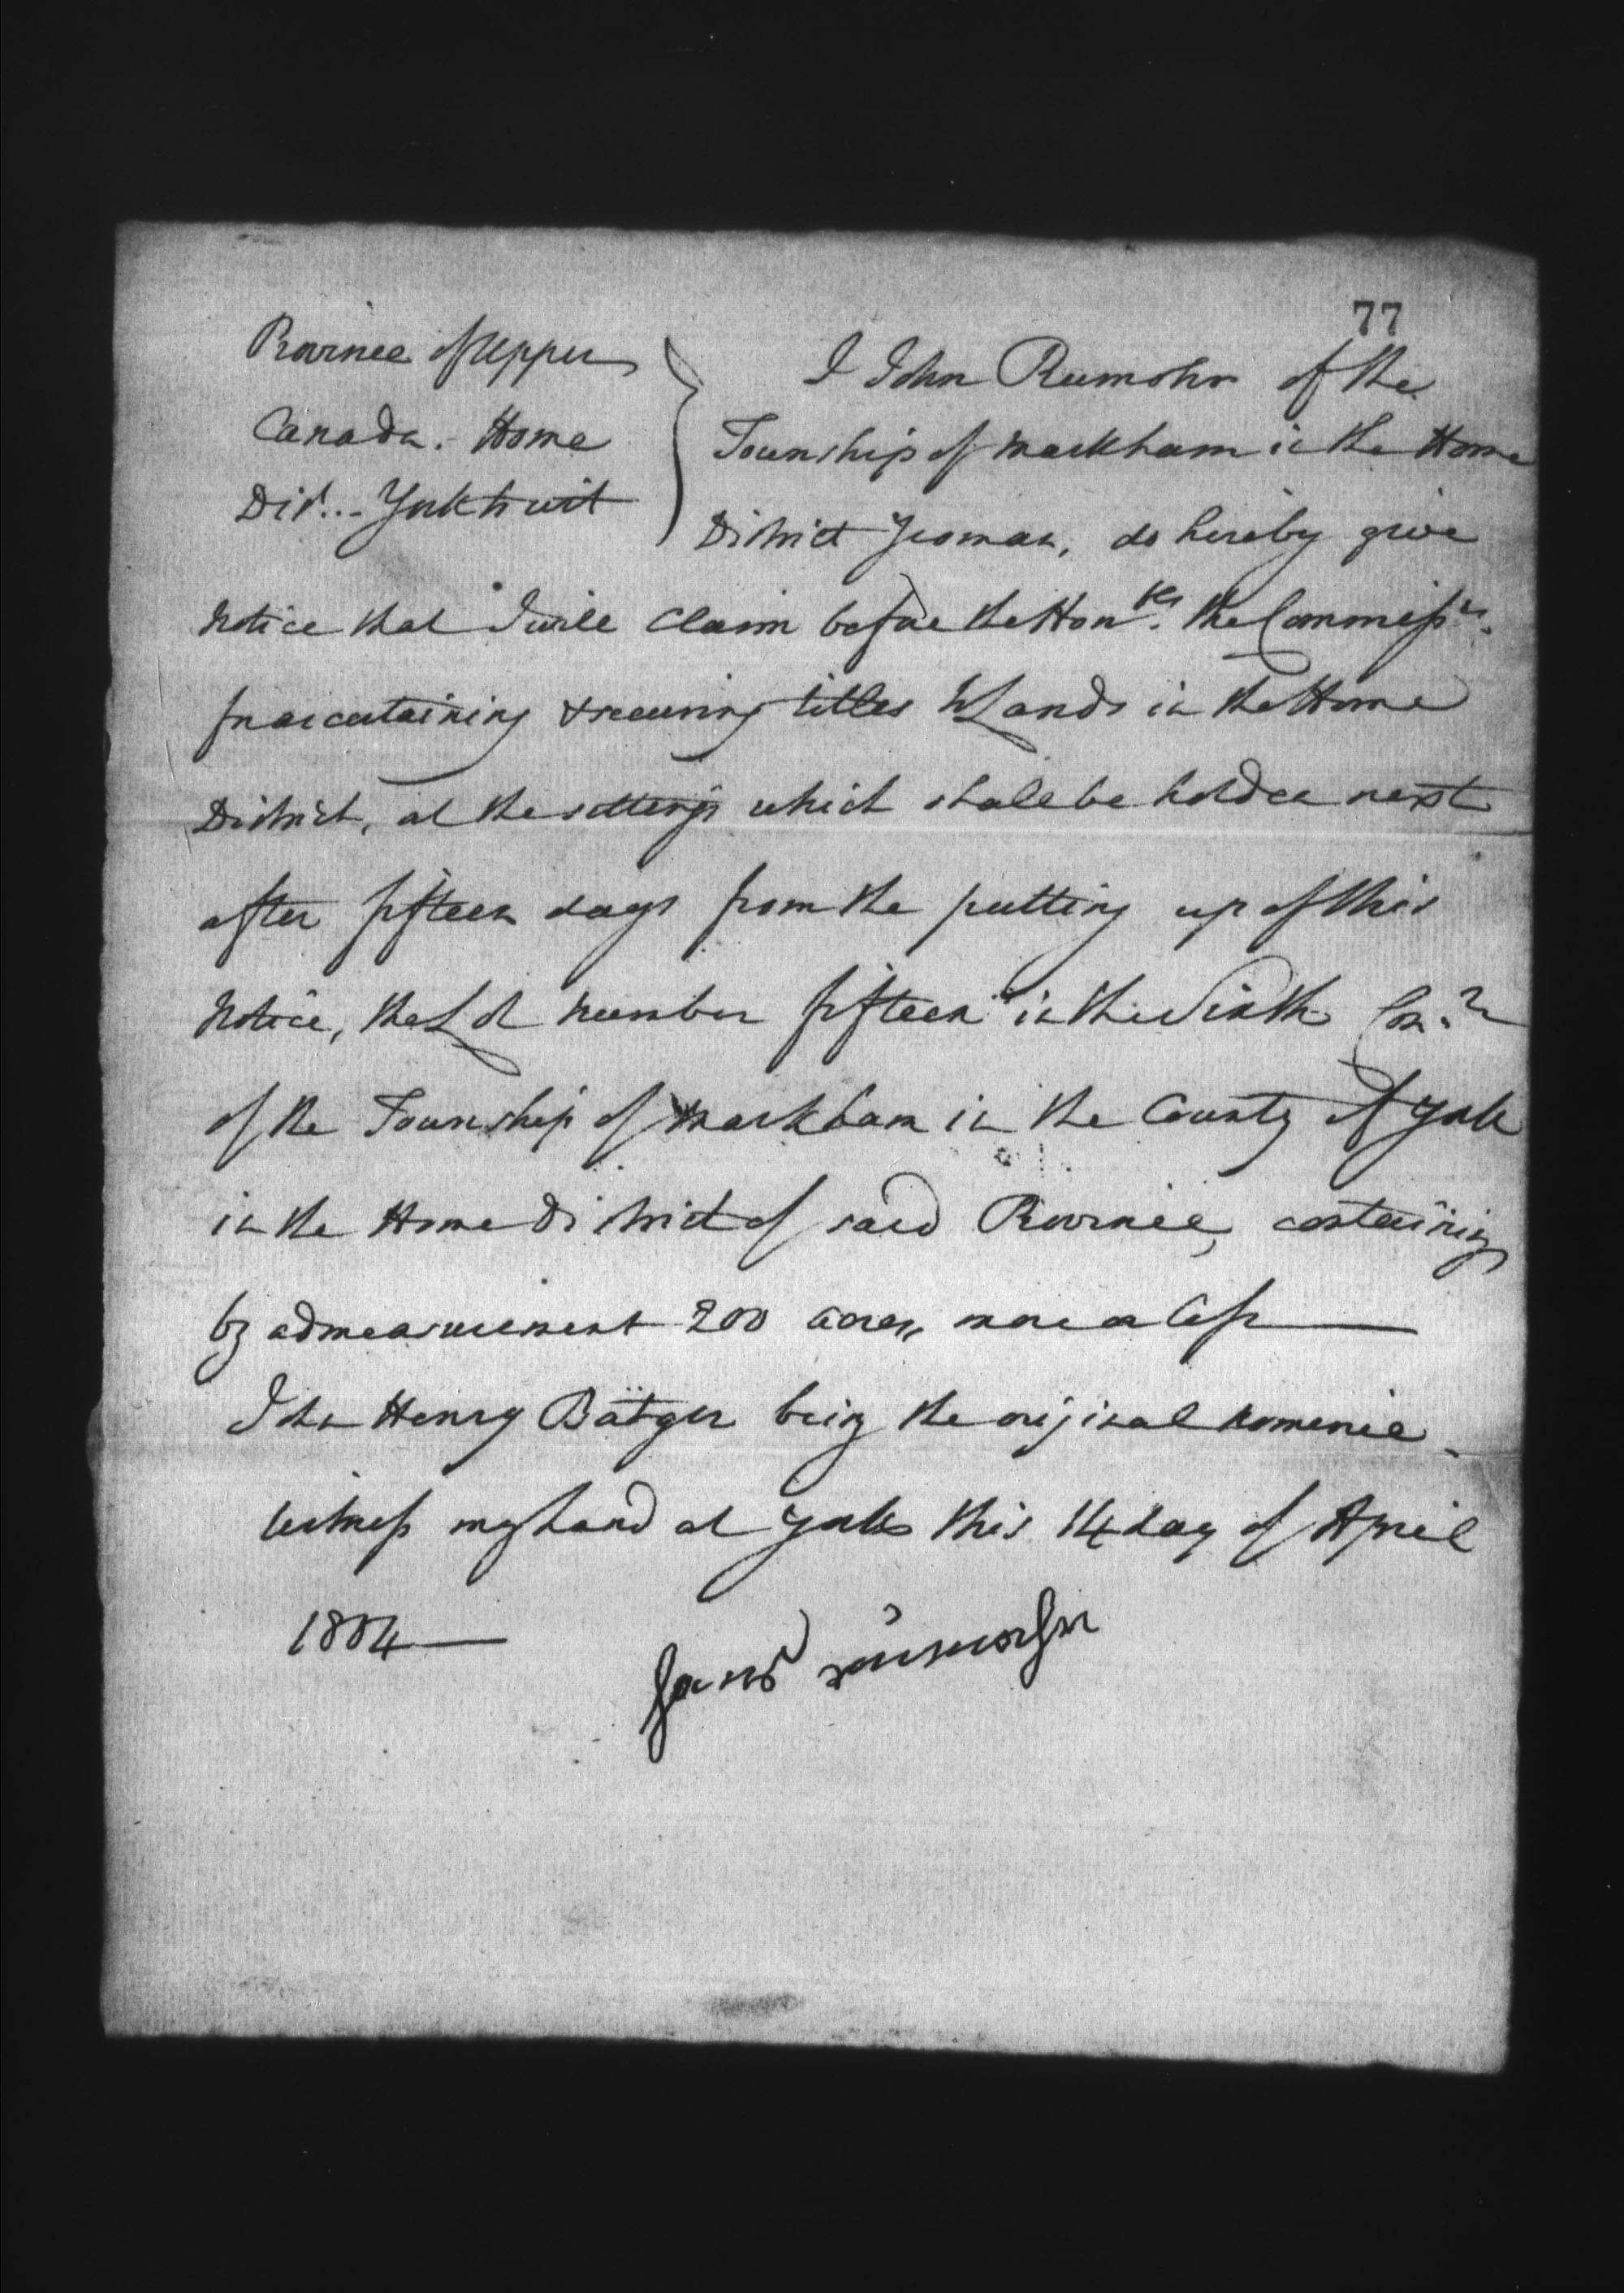 77
Province of Upper
Canada. Home
Dis.t.. York to wit
I John Rumohr of the
Township of Markham in the Home
District Yeoman, do hereby give
notice that I will Claim before the Hon.bls the Commiss.rs
for ascertaining & securing titles to Lands in the Home
District, at the sittings which shall be holden next
after fifteen days from the putting up of this
notice, the Lot number fifteen in the Sixth Con.n
of the Township of Markham in the County of York
in the Home District of said Province, containing
by admeasurement 200 acres, more or less
John Henry Bätger being the original nominee.
witness my hand at York this 14 day of April
1804
Hans Rumohr